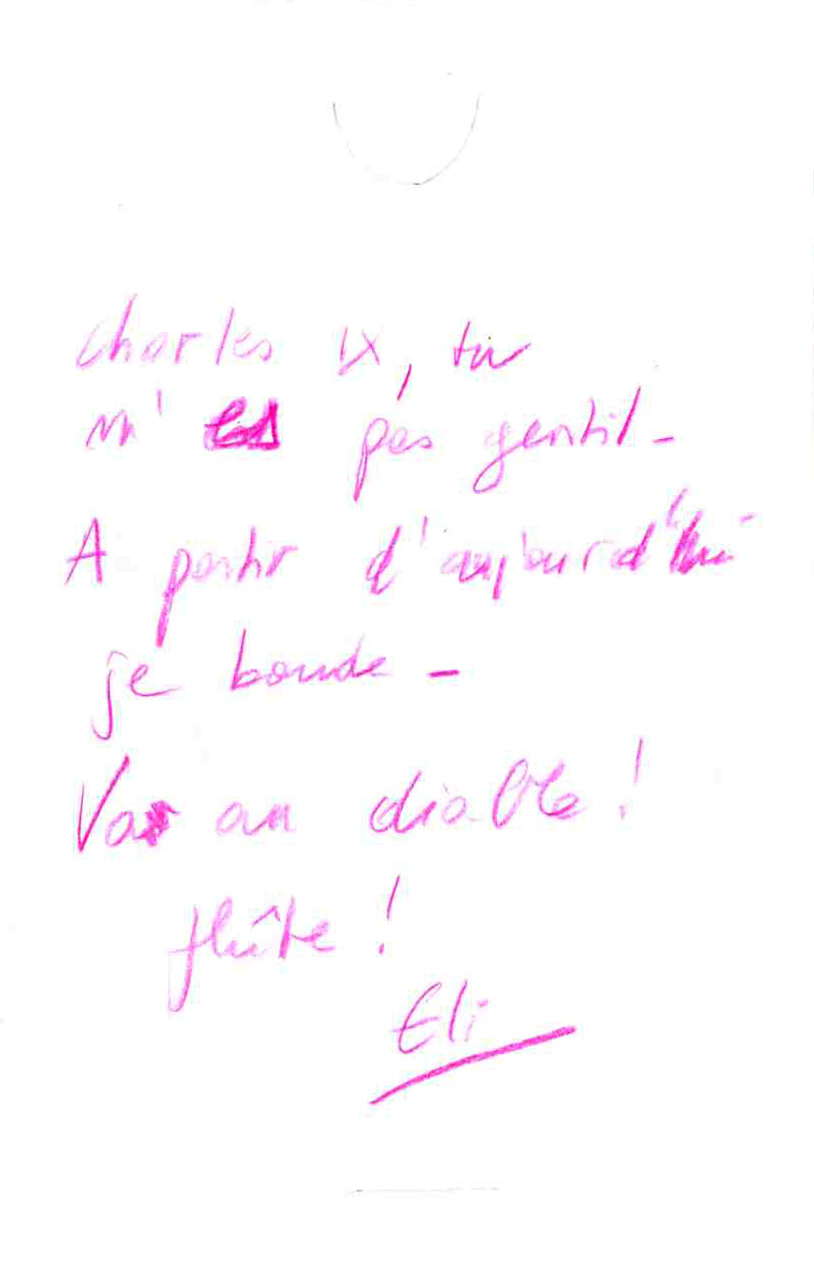 Charles IX, tu
n'es pas gentil -
A partir d'aujourd'hui
je boude -
Va au diable !
flûte !
Eli